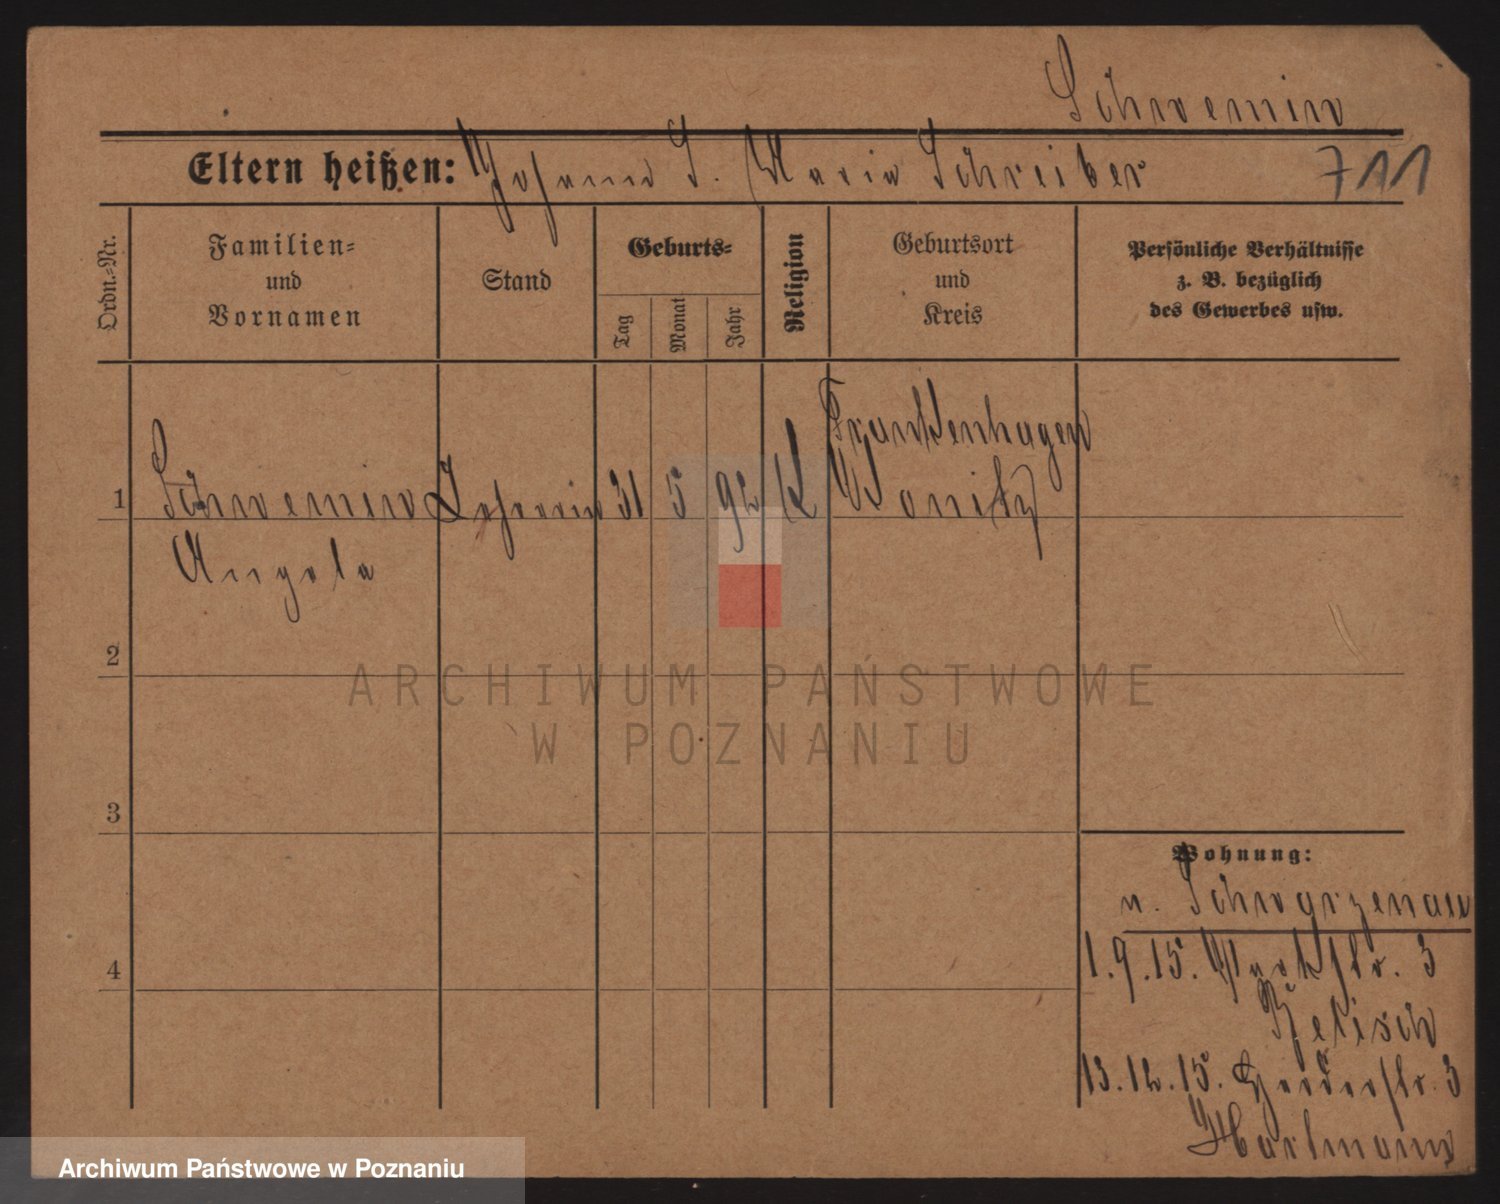 Schwemin
Eltern heißen: Johann S. Maria Schreiber
711
Ordn.-Nr.
Familien-
und
Vornamen
Stand
Geburts-
Tag
Monat
Jahr
Religion
Geburtsort
und
Kreis
Persönliche Verhältnisse
z. B. bezüglich
des Gewerbes usw.
1
Schwemin
Angela
Lehrerin
31
5
92
K
Frankenhagen
Konitz
2
3
4
Wohnung:
n. Schwarzenau
1.9.15. Parkstr. 3
13.12.15. Herderstr. 3
Hartmann
ARCHIWUM PAŃSTWOWE
W POZNANIU
Archiwum Państwowe w Poznaniu